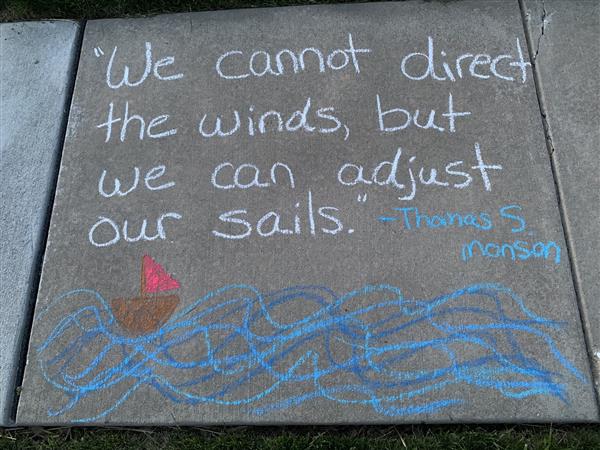 "We cannot direct
the winds, but
we can adjust
our sails." -Thomas S.
monson